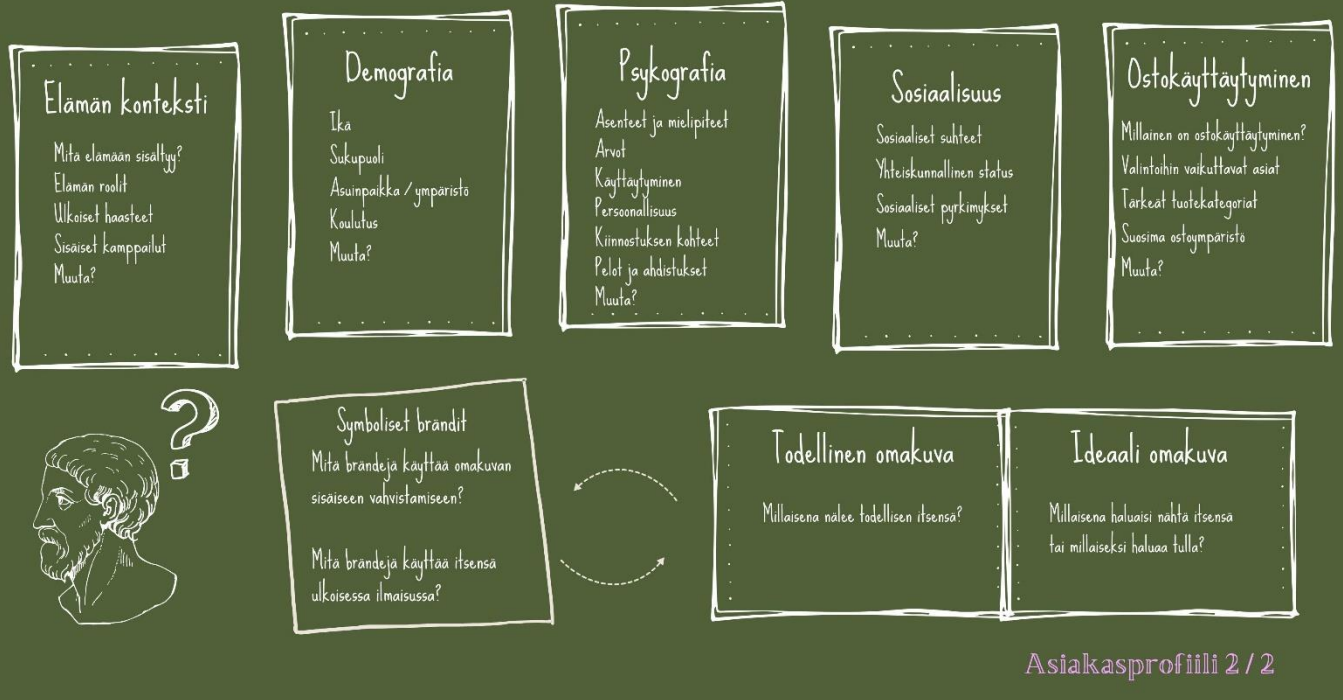 Elämän konteksti
Mitä elämään sisältyy?
Elämän roolit
Ulkoiset haasteet
Sisäiset kamppailut
Muuta?
Demografia
Ikä
Sukupuoli
Asuinpaikka / ympäristö
Koulutus
Muuta?
Psykografia
Asenteet ja mielipiteet
Arvot
Käyttäytyminen
Persoonallisuus
Kiinnostuksen kohteet
Pelot ja ahdistukset
Muuta?
Sosiaalisuus
Sosiaaliset suhteet
Yhteiskunnallinen status
Sosiaaliset pyrkimykset
Muuta?
Ostokäyttäytyminen
Millainen on ostokäyttäytyminen?
Valintoihin vaikuttavat asiat
Tärkeät tuotekategoriat
Suosima ostoympäristö
Muuta?
?
Symboliset brändit
Mitä brändejä käyttää omakuvan
sisäiseen vahvistamiseen?
Mitä brändejä käyttää itsensä
ulkoisessa ilmaisussa?
Todellinen omakuva
Millaisena nälee todellisen itsensä?
Ideaali omakuva
Millaisena haluaisi nähtä itsensä
tai millaiseksi haluaa tulla?
Asiakasprofiili 2 / 2